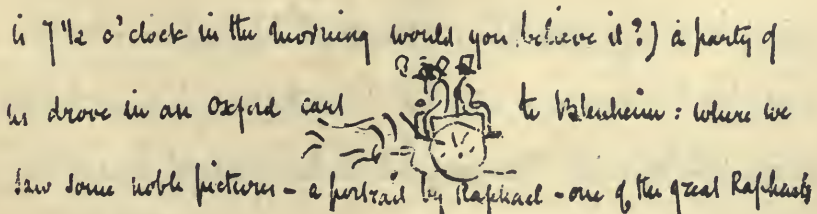 is 7 1/2 o'clock in the morning would you believe it?) a party of
us drove in an Oxford cart to Blenheim: where we
saw some noble pictures - a portrait by Raphael - one of the great Raphaels